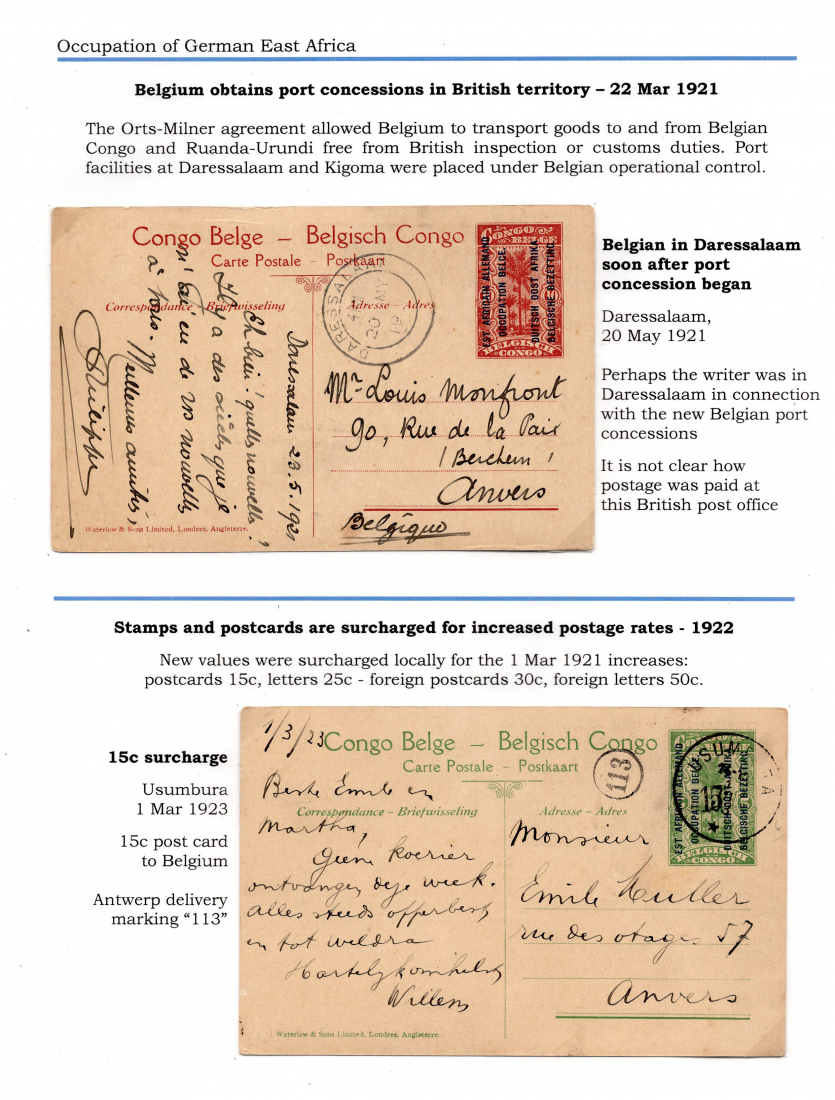 Occupation of German East Africa
Belgium obtains port concessions in British territory – 22 Mar 1921
The Orts-Milner agreement allowed Belgium to transport goods to and from Belgian
Congo and Ruanda-Urundi free from British inspection or customs duties. Port
facilities at Daressalaam and Kigoma were placed under Belgian operational control.
Congo Belge – Belgisch Congo
Carte Postale – Postkaart
Correspondance – Briefwisseling
Adresse – Adres
CONGO BELGE
EST AFRICAIN ALLEMAND
OCCUPATION BELGE
DUITSCH OOST AFRIKA
BELGISCHE BEZETTING
BELGISCH CONGO
DARESSALAAM
20 MY
19
Daressalam 23.5.1921
Eh bien! quelles nouvelles?
Il y a des siècles que je
n'ai eu de vos nouvelles
à tous. Meilleures amitiés,
Philippe
Mr Louis Monfront
90, Rue de la Paix
(Berchem)
Anvers
Belgique
Waterlow & Sons Limited, Londres, Angleterre.
Belgian in Daressalaam
soon after port
concession began
Daressalaam,
20 May 1921
Perhaps the writer was in
Daressalaam in connection
with the new Belgian port
concessions
It is not clear how
postage was paid at
this British post office
Stamps and postcards are surcharged for increased postage rates - 1922
New values were surcharged locally for the 1 Mar 1921 increases:
postcards 15c, letters 25c - foreign postcards 30c, foreign letters 50c.
15c surcharge
Usumbura
1 Mar 1923
15c post card
to Belgium
Antwerp delivery
marking “113”
1/3/23
Congo Belge – Belgisch Congo
Carte Postale – Postkaart
113
Correspondance – Briefwisseling
Adresse – Adres
EST AFRICAIN ALLEMAND
OCCUPATION BELGE
DUITSCH OOST AFRIKA
BELGISCHE BEZETTING
15
BELGISCH CONGO
Beste Emile en
Martha,
Geene koerier
ontvangen deze week.
Alles steeds opperbest
en tot weldra
Willem
Monsieur
Emile Muller
rue des otages 57
Anvers
Waterlow & Sons Limited, Londres, Angleterre.